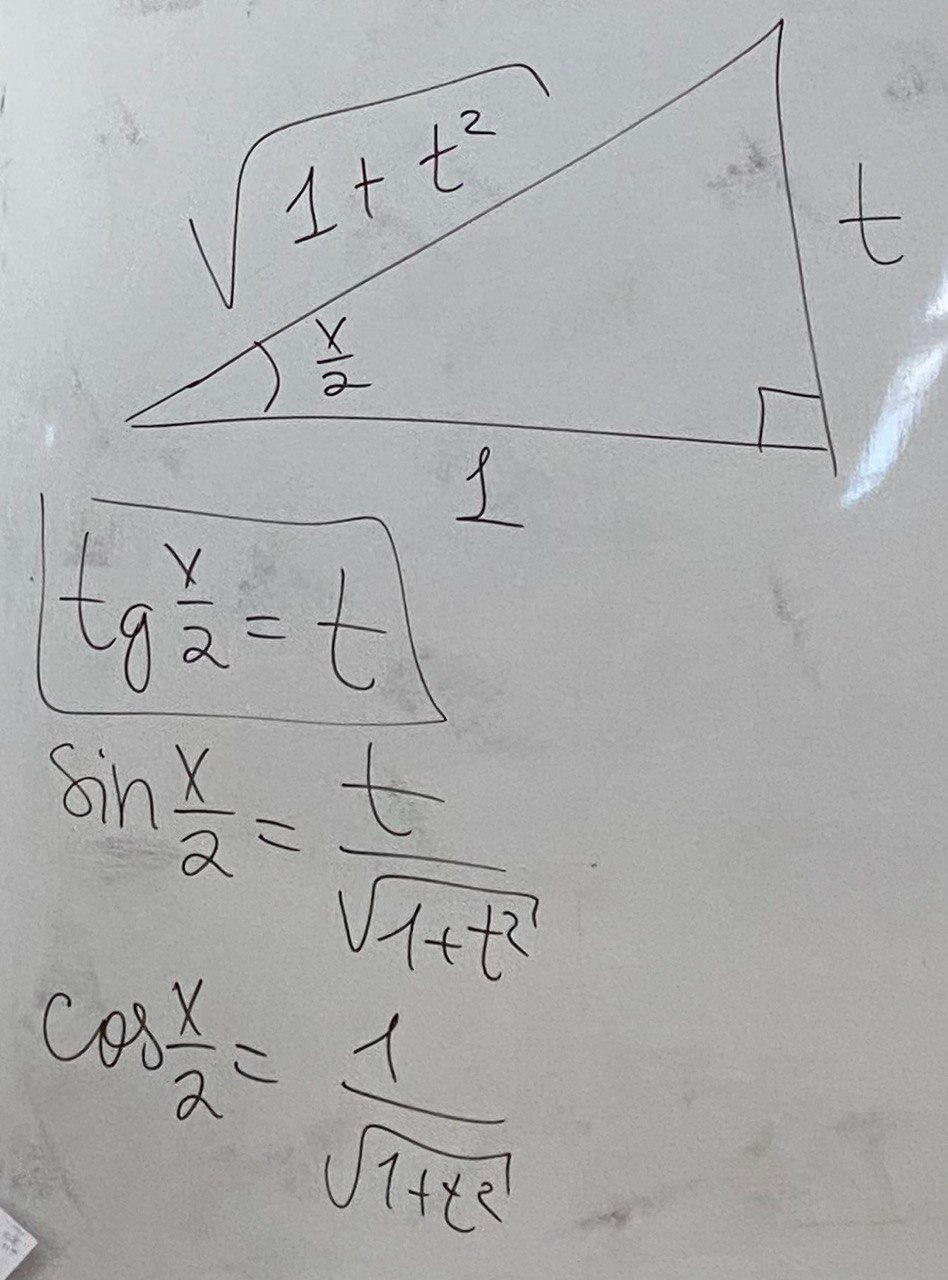 √(1+t²)
t
x/2
1
tg x/2 = t
sin x/2 = t/√(1+t²)
cos x/2 = 1/√(1+t²)